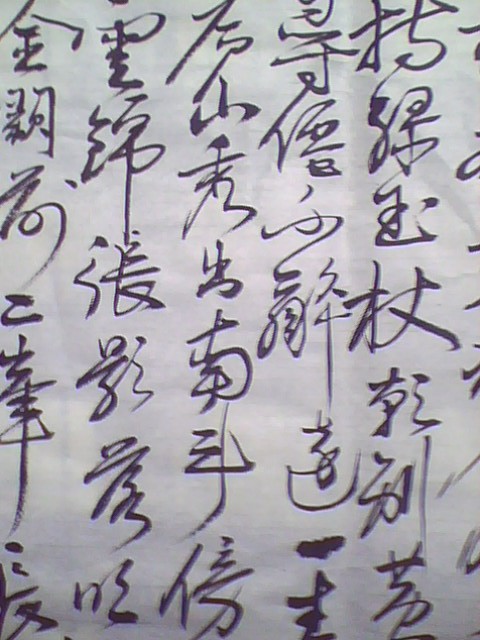 持綠玉杖朝別黄
尋僊不辭遠一生
廬山秀出南斗傍
雲錦張影落明
金闕前二峯長